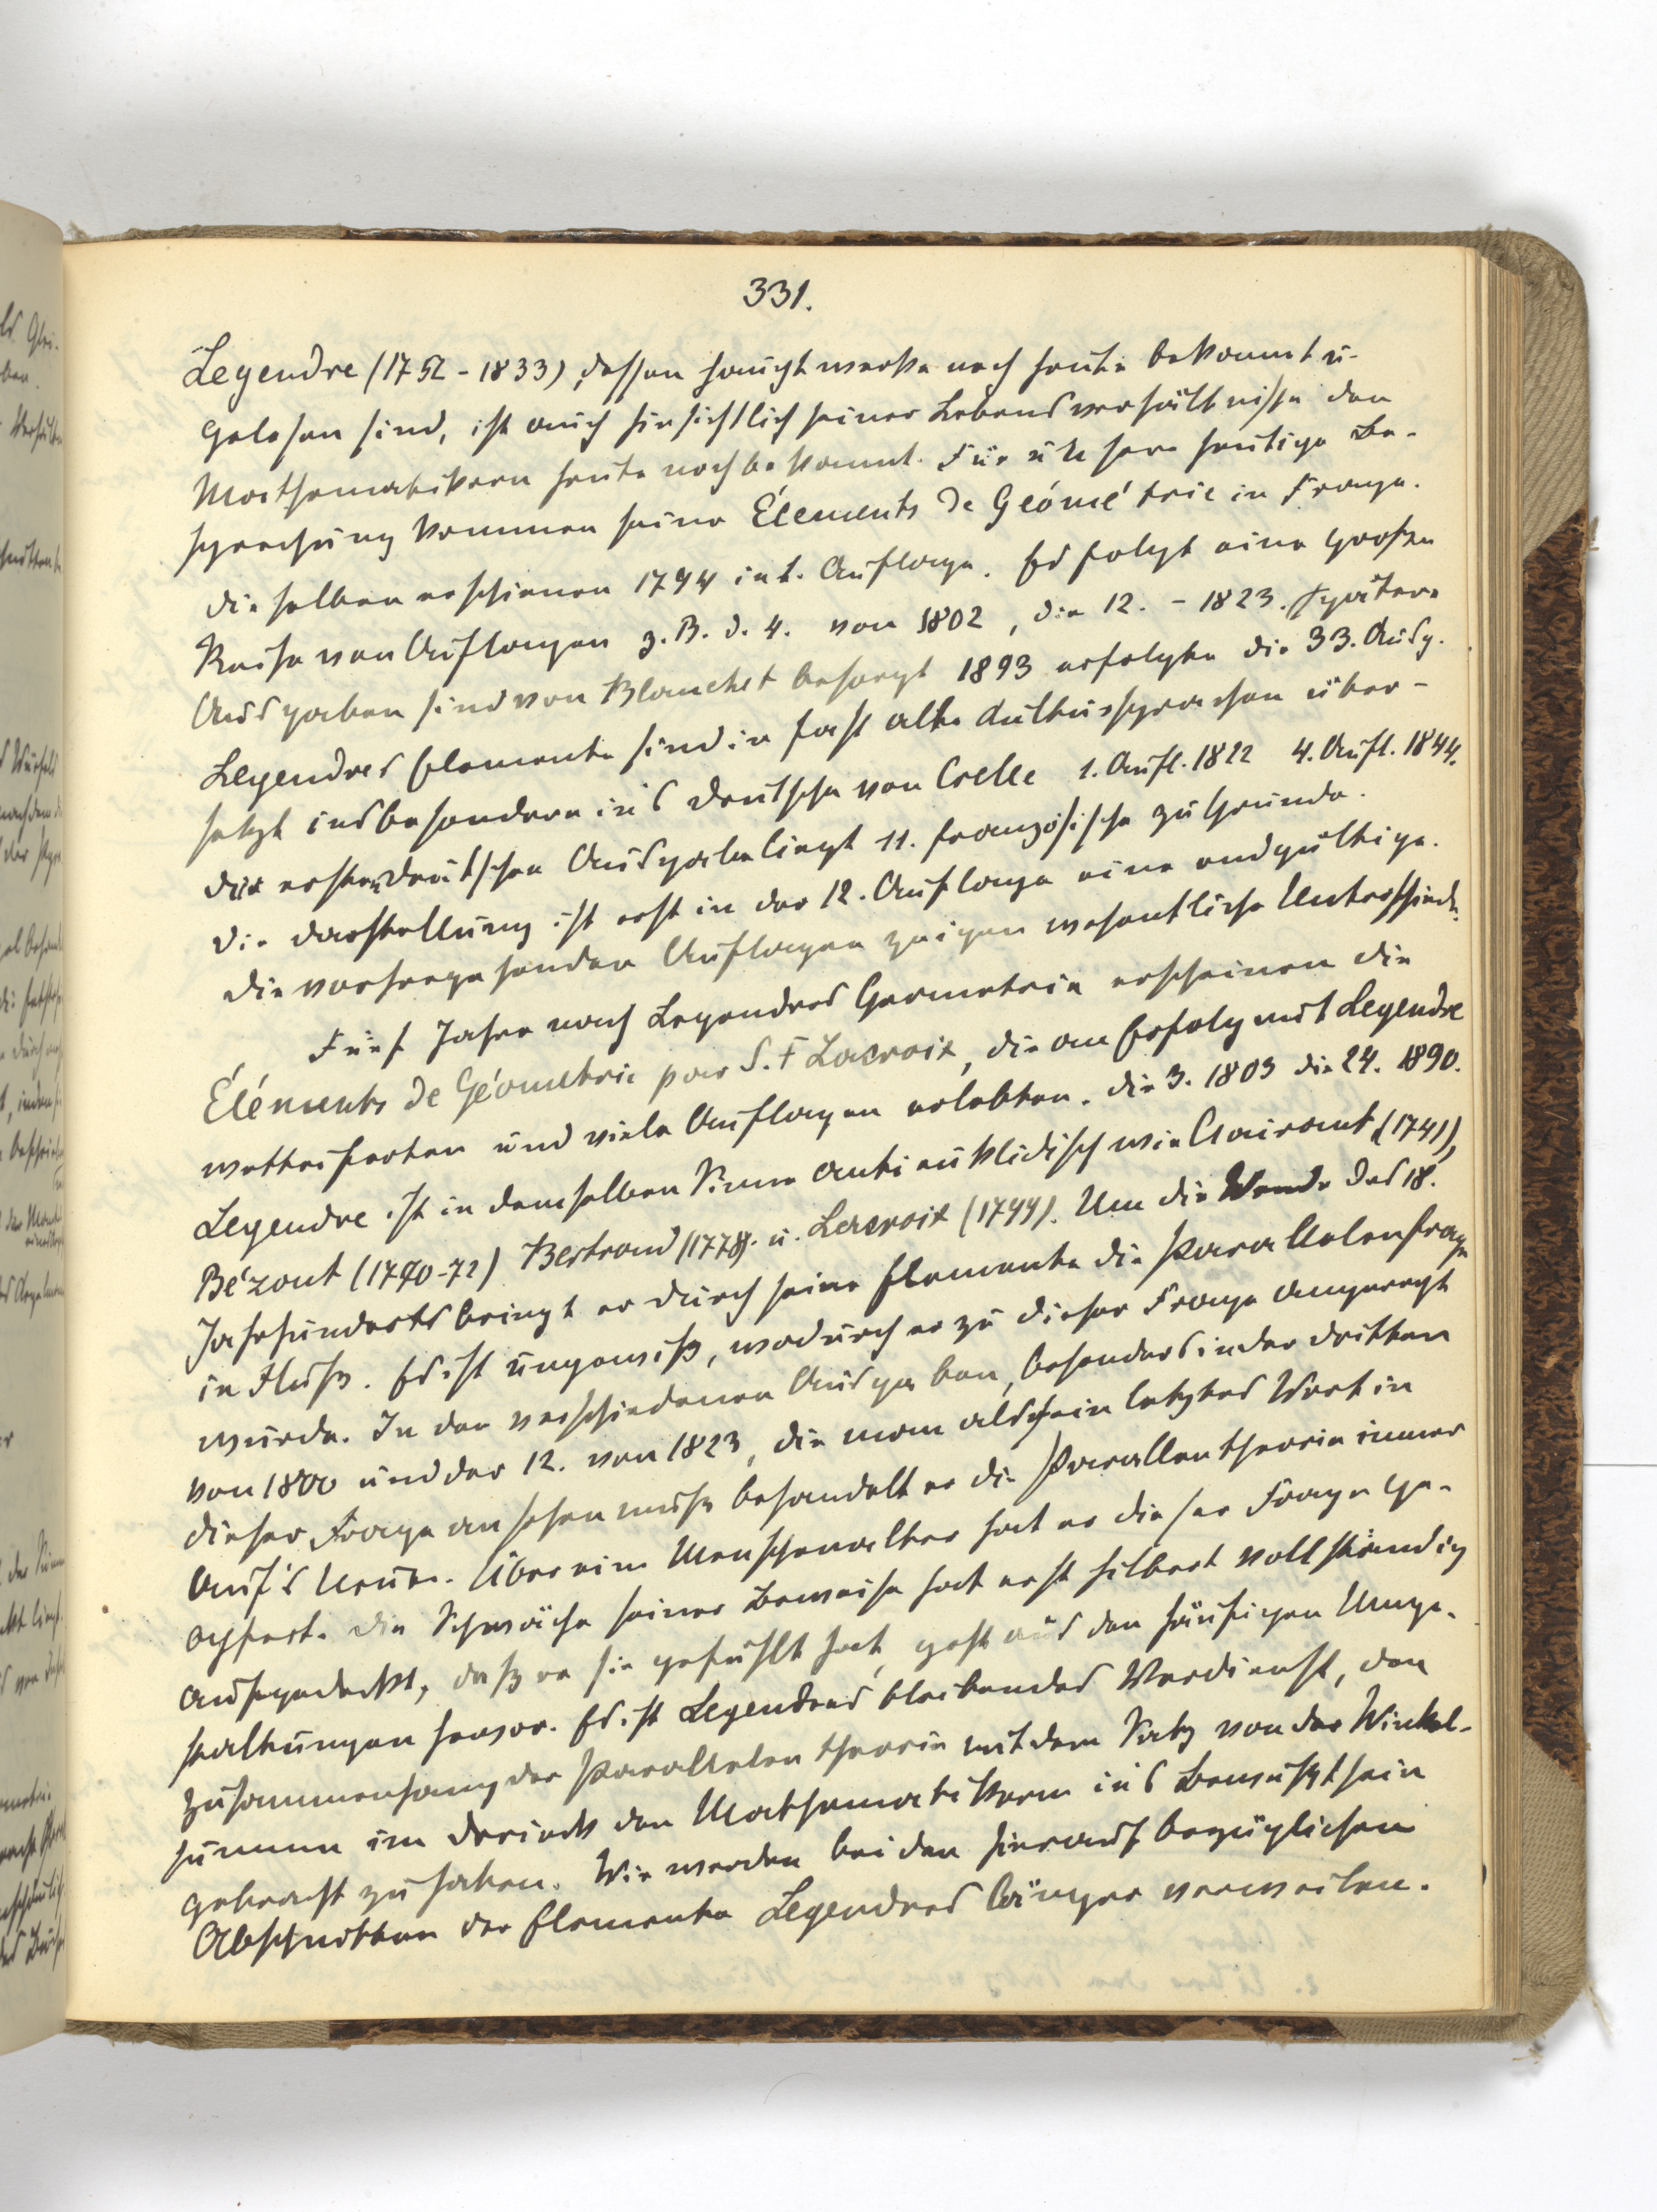 331.
Legendre (1752 - 1833), dessen Hauptwerke noch heute bekannt u.
gelesen sind, ist auch hinsichtlich seiner Lebensverhältnisse den
Mathematikern heute noch bekannt. Für unsere heutige Be-
sprechung kommen seine Élements de Géométrie in Frage.
Dieselben erschienen 1794 in 1. Auflage. Es folgt eine große
Reihe von Auflagen z. B. d. 4. von 1802, die 12. - 1823. Spätere
Ausgaben sind von Blanchet besorgt 1893 erfolgte die 33. Ausg.
Legendres Elemente sind in fast alle Kultursprachen über-
setzt insbesondere in's Deutsche von Crelle 1. Aufl. 1822 4. Aufl. 1844.
Der ersten deutschen Ausgabe liegt 11. französische zu Grunde.
Die Darstellung ist erst in der 12. Auflage eine endgültige.
Die vorhergehenden Auflagen zeigen wesentliche Unterschiede.
Fünf Jahre nach Legendres Geometrie erscheinen die
Éléments de Géométrie par S. F Lacroix, die an Erfolg mit Legendre
wetteiferten und viele Auflagen erlebten. Die 3. 1803 die 24. 1890.
Legendre ist in demselben Sinne antieuklidisch wie Clairaut (1741),
Bézout (1770-72) Bertrand (1778). u. Lacroix (1799). Um die Wende des 18.
Jahrhunderts bringt er durch seine Elemente die Parallelenfrage
in Fluß. Es ist ungewiß, wodurch er zu dieser Frage angeregt
wurde. In den verschiedenen Ausgaben, besonders in der dritten
von 1800 und der 12. von 1823, die man als sein letztes Wort in
dieser Frage ansehen muß behandelt er die Parallentheorie immer
auf's Neue. Über ein Menschenalter hat er dieser Frage ge-
opfert. Die Schwäche seiner Beweise hat erst Hilbert vollständig
aufgedeckt, daß er sie gefühlt hat, geht aus den häufigen Umge-
staltungen hervor. Es ist Legendres bleibendes Verdienst, den
Zusammenhang der Parallelentheorie mit dem Satz von der Winkel-
summe im Dreieck den Mathematikern in's Bewußtsein
gebracht zu haben. Wir werden bei den hierauf bezüglichen
Abschnitten der Elemente Legendres länger verweilen.